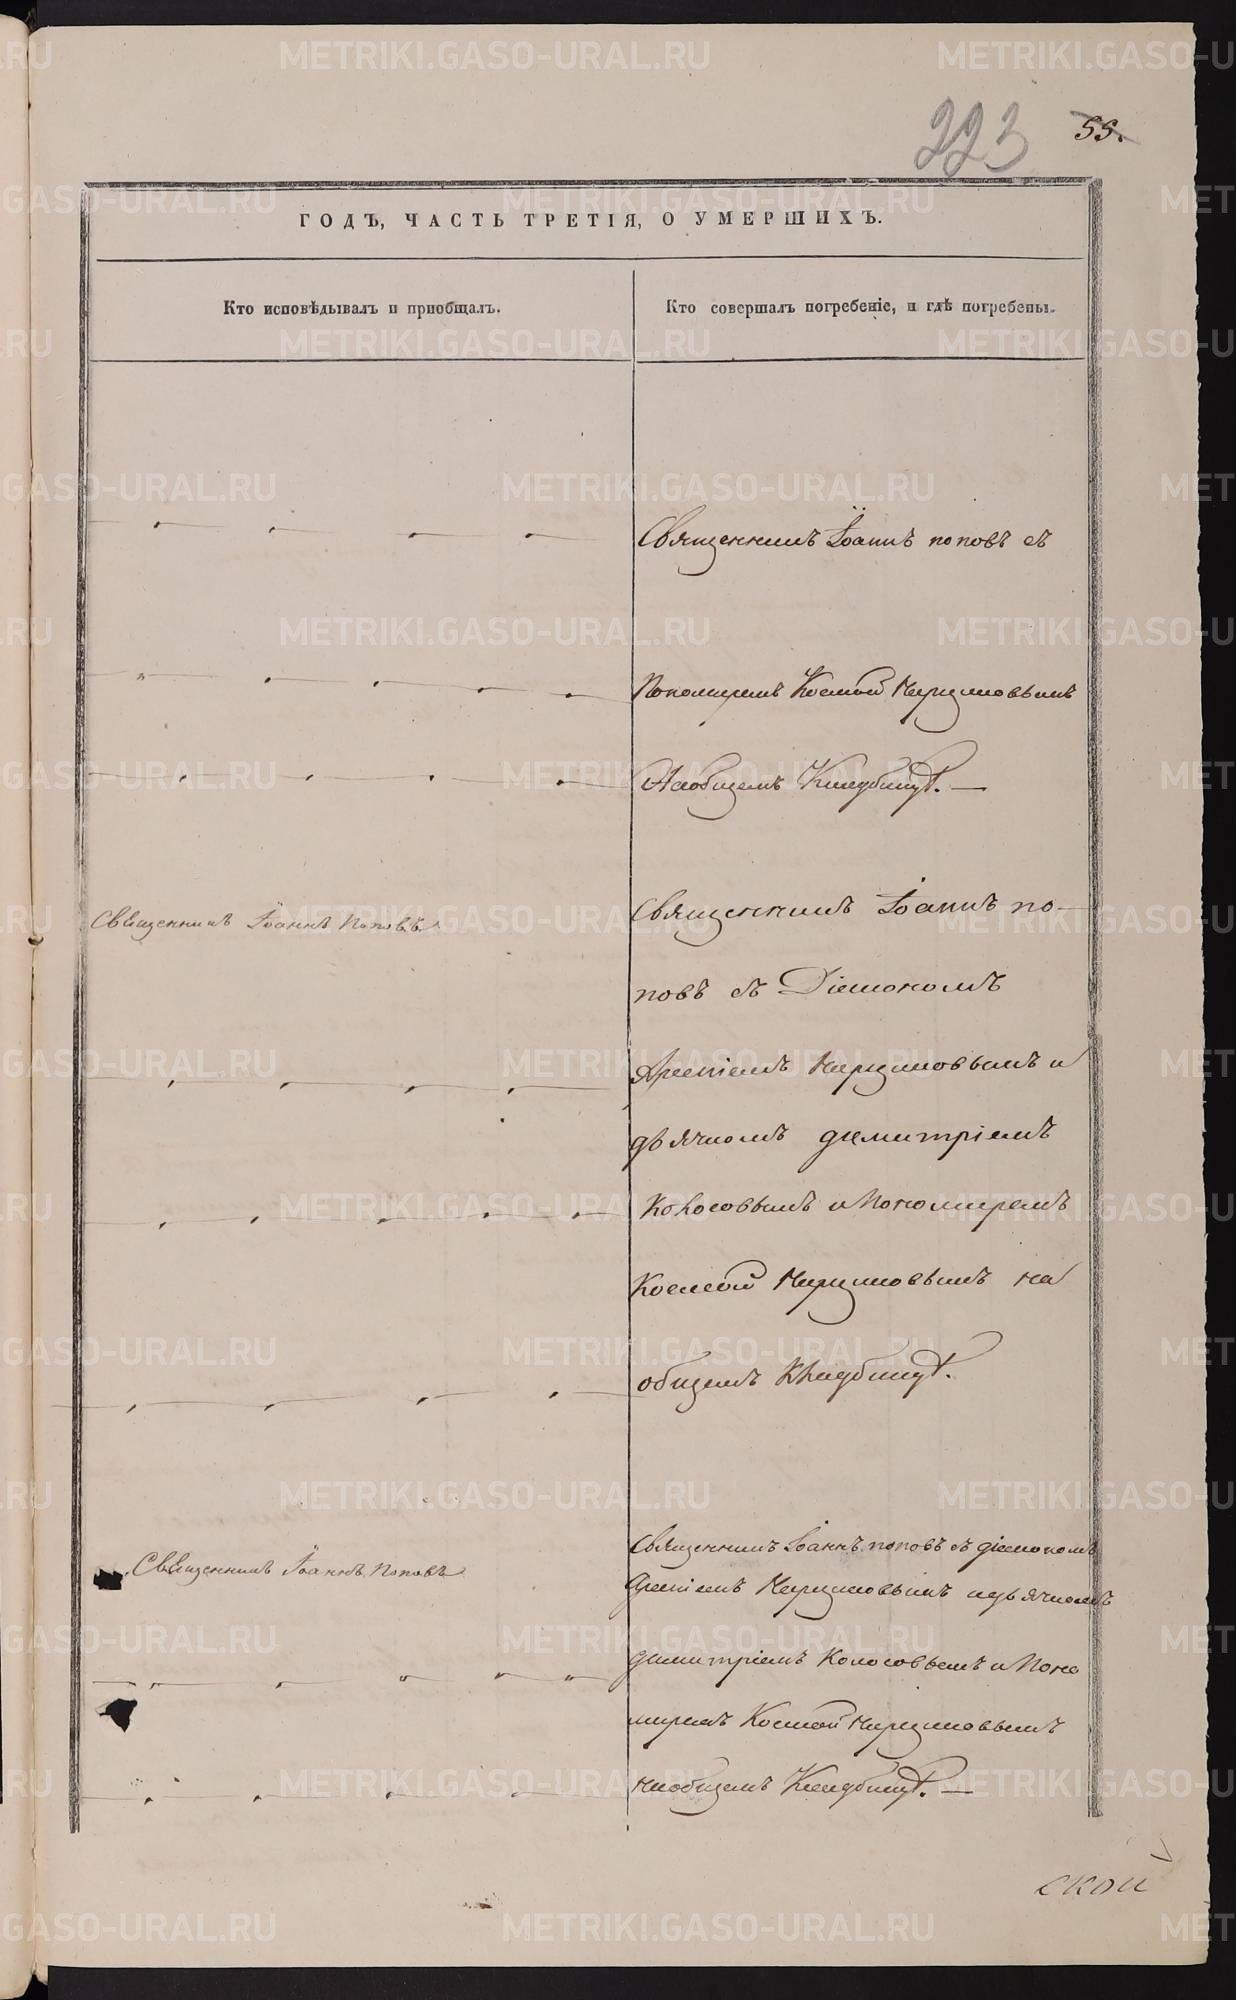 223 55.
ГОДЪ, ЧАСТЬ ТРЕТІЯ, О УМЕРШИХЪ.
Кто исповѣдывалъ и пріобщалъ.
Кто совершалъ погребеніе, и гдѣ погребены.
Священникъ Іоаннъ поповъ съ
Пономаремъ Космой
Наобщемъ Кладбищѣ. —
Священникъ Іоаннъ Поповъ
Священникъ Іоаннъ по-
повъ съ Діакономъ
Арсеніемъ и
дьячкомъ димитріемъ
Колосовымъ и Пономаремъ
Космой на
общемъ Кладбищѣ.
Священникъ Іоаннъ Поповъ
Священникъ Іоаннъ поповъ съ діакономъ
Арсеніемъ и дьячкомъ
димитріемъ Колосовымъ и Поно
маремъ Космой
наобщемъ Кладбищѣ. —
ской
METRIKI.GASO-URAL.RU